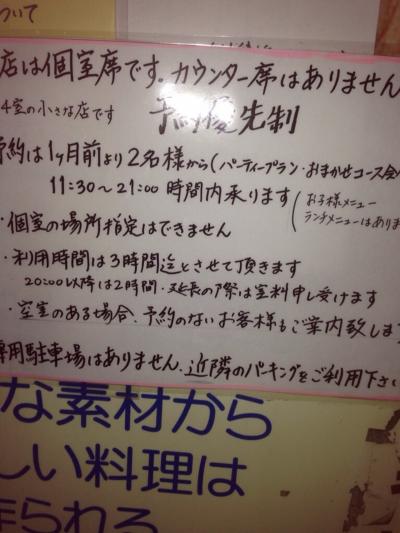 ついて
店は個室席です。カウンター席はありません
4室の小さな店です 予約優先制
予約は1ヶ月前より2名様から(パーティープラン・おまかせコース会
11:30～21:00 時間内承ります(お子様メニュー
ランチメニューはありま
・個室の場所指定はできません
・利用時間は3時間迄とさせて頂きます
20:00以降は2時間・延長の際は室料申し受けます
・空室のある場合、予約のないお客様もご案内致しま
専用駐車場はありません、近隣のパーキングをご利用下さい
な素材から
しい料理は
作られる